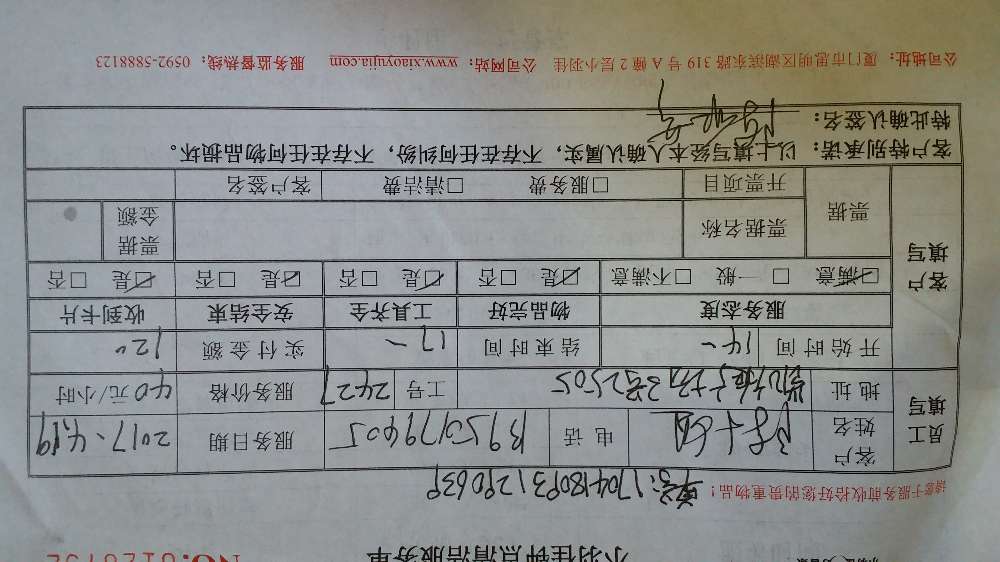 小羽佳钟点清洁服务单
请客户服务前收拾好您的贵重物品！
单号：170418093129063P
员工填写
客户姓名 电话 13950179405 服务日期 2017.4.19
地址 工号 2427 服务价格 40元/小时
开始时间 14- 结束时间 17- 实付金额 120
客户填写
服务态度 物品完好 工具齐全 安全结束 收到卡片
☑满意 □一般 □不满意 ☑是 □否 ☑是 □否 ☑是 □否 ☑是 □否
票据 票据名称 票据金额
开票项目 □服务费 □清洁费 客户签名
客户特别承诺：以上填写经本人确认属实，不存在任何纠纷，不存在任何物品损坏。
特此确认签名：
公司地址：厦门市思明区湖滨东路 319 号 A 幢 2 层小羽佳 公司网站：www.xiaoyujia.com 服务监督热线：0592-5888123